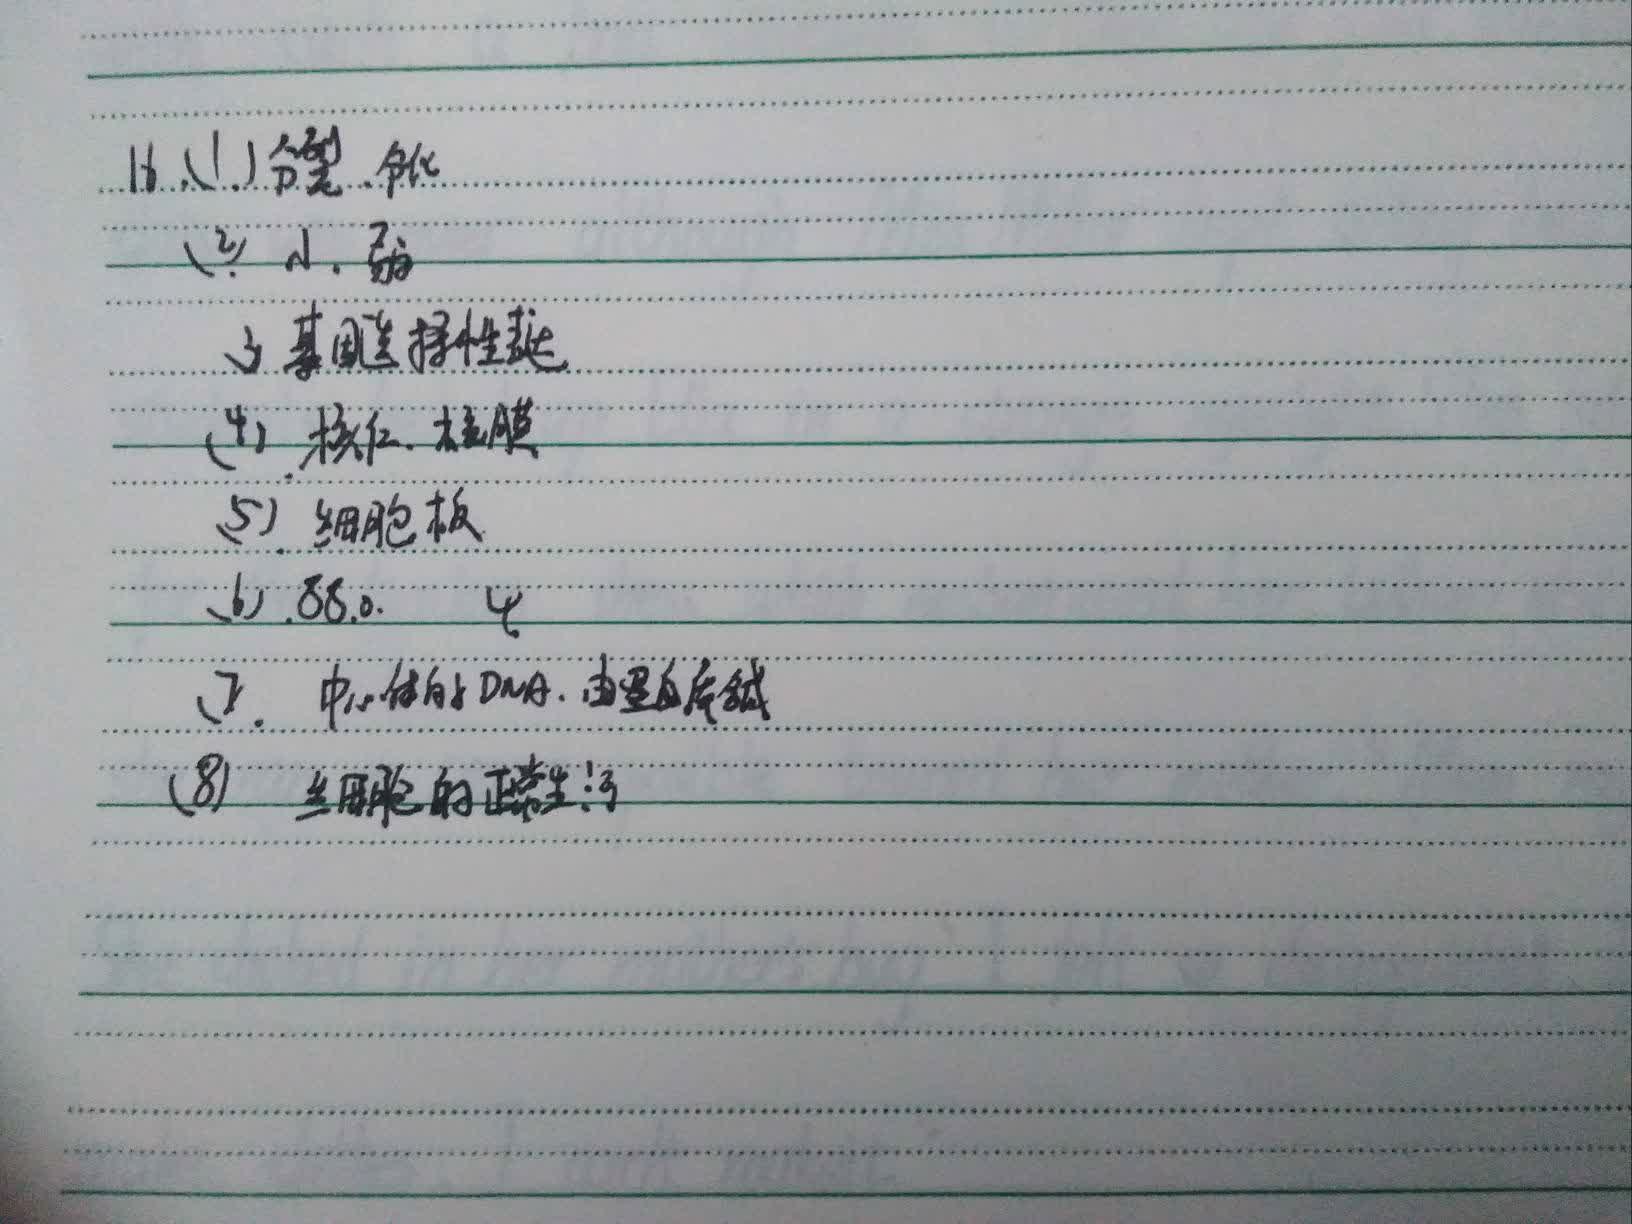 16.(1.)分裂.分化
(2) 小.弱
3 基因选择性表达
(4).核仁.核膜
(5).细胞板
(6).88.0. 4
7. 中心体的DNA.由蛋白质组成
(8) 细胞的正常生活